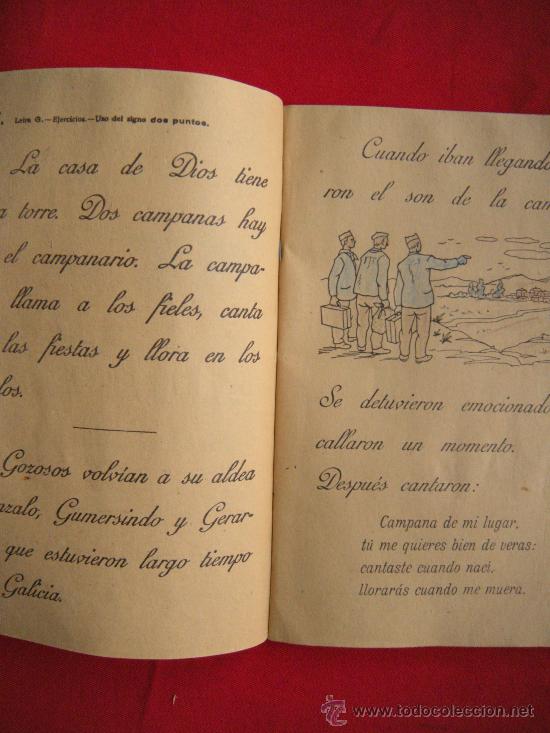 Letra G.—Ejercicios.—Uso del signo dos puntos.
La casa de Dios tiene
a torre. Dos campanas hay
el campanario. La campa-
llama a los fieles, canta
las fiestas y llora en los
los.
Gozosos volvían a su aldea
nzalo, Gumersindo y Gerar-
que estuvieron largo tiempo
Galicia.
Cuando iban llegando
ron el son de la cam
Se detuvieron emocionado
callaron un momento.
Después cantaron:
Campana de mi lugar,
tú me quieres bien de veras:
cantaste cuando nací,
llorarás cuando me muera.
© www.todocoleccion.net